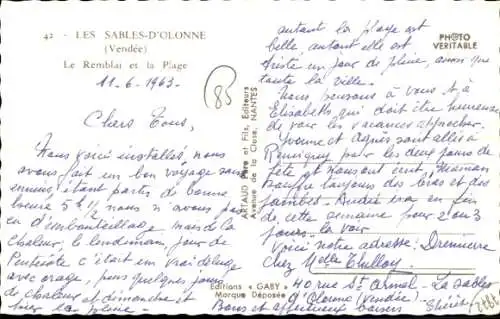 42 - LES SABLES-D'OLONNE
(Vendée)
Le Remblai et la Plage
11-6-1963.
85
Chers Tous,
Nous voici installés, nous
avons fait un bon voyage sans
ennuis, étant partis de bonne
heure 5h 1/2 nous n'avons pas eu
d'embouteillage mais de la
chaleur, le lendemain, jour de
Pentecôte c'était un vrai déluge
avec orage, puis quelques jours
de chaleur et dimanche et
hier la pluie.
ARTAUD Père et Fils, Editeurs
Avenue de la Close, NANTES
Editions "GABY"
Marque Déposée
PHOTO
VERITABLE
autant la plage est
belle, autant elle est
triste un jour de pluie, ainsi que
toute la ville.
Nous pensons à vous et à
Elisabeth qui doit être heureuse
de voir les vacances approcher.
Yvonne et Agnès sont allés à
pour les deux jours de
fête et nous ont écrit, Maman
souffre toujours des bras et des
jambes. André ira en fin
de cette semaine pour 2 ou 3
jours la voir
Voici notre adresse:
chez Melle
40 rue St Armel - La Sables
d'Olonne (Vendée)
Bons et affectueux baisers